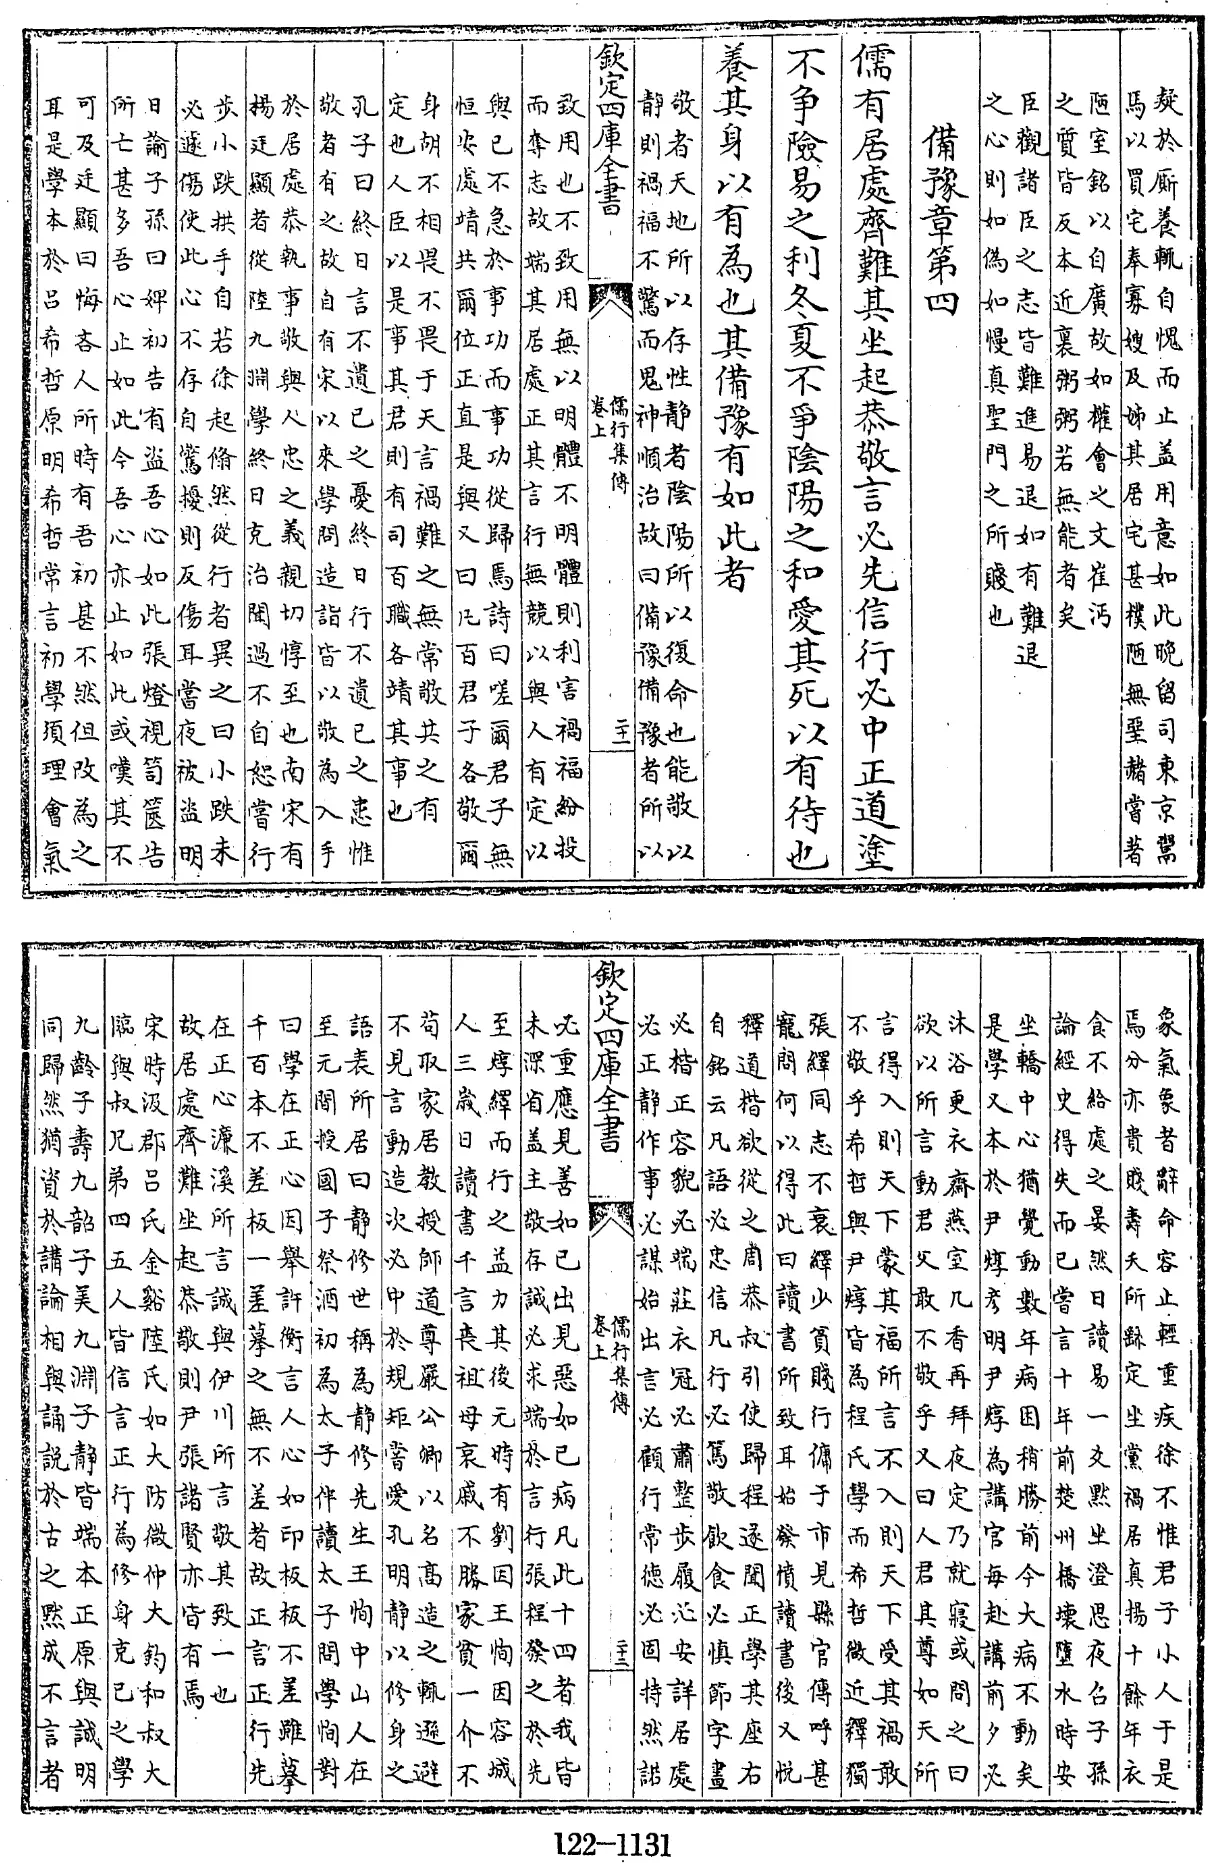 疑於厮養輒自愧而止盖用意如此晚留司東京鬻
馬以買宅奉寡嫂及姊其居宅甚樸陋無堊赭嘗著
陋室銘以自廣故如權會之文崔沔
之質皆反本近裏粥粥若無能者矣
臣觀諸臣之志皆難進易退如有難退
之心則如偽如慢真聖門之所賤也
備豫章第四
儒有居處齊難其坐起恭敬言必先信行必中正道塗
不争險易之利冬夏不爭陰陽之和愛其死以有待也
養其身以有為也其備豫有如此者
敬者天地所以存性静者陰陽所以復命也能敬以
静則禍福不驚而鬼神順治故曰備豫備豫者所以
欽定四庫全書
儒行集傳
卷上
二十二
致用也不致用無以明體不明體則利害禍福紛投
而奪志故端其居處正其言行無競以與人有定以
與已不急於事功而事功從歸焉詩曰嗟爾君子無
恒安處靖共爾位正直是與又曰凡百君子各敬爾
身胡不相畏不畏于天言禍難之無常敬共之有
定也人臣以是事其君則有司百職各靖其事也
孔子曰終日言不遺已之憂終日行不遺已之患惟
敬者有之故自有宋以來學問造詣皆以敬為入手
於居處恭執事敬與人忠之義親切惇至也南宋有
楊廷顯者從陸九淵學終日克治聞過不自恕嘗行
歩小跌拱手自若徐起翛然從行者異之曰小跌未
必遽傷使此心不存自驚擾則反傷耳當夜被盗明
日諭子孫曰婢初告有盗吾心如此張燈視笥篋告
所亡甚多吾心止如此今吾心亦止如此或嘆其不
可及廷顯曰悔吝人所時有吾初甚不然但改為之
耳是學本於呂希哲原明希哲常言初學須理會氣
象氣象者辭命容止輕重疾徐不惟君子小人于是
焉分亦貴賤壽夭所繇定坐黨禍居真揚十餘年衣
食不給處之晏然日讀易一爻黙坐澄思夜召子孫
論經史得失而已嘗言十年前楚州橋壊墮水時安
坐轎中心猶覺動數年病困稍勝前今大病不動矣
是學又本於尹焞考明尹焞為講官每赴講前夕必
沐浴更衣齋燕室几香再拜夜定乃就寢或問之曰
欲以所言動君父敢不敬乎又曰人君其尊如天所
言得入則天下蒙其福所言不入則天下受其禍敢
不敬乎希哲與尹焞皆為程氏學而希哲微近釋獨
張繹同志不衰繹少貧賤行傭于市見縣官傳呼甚
寵問何以得此曰讀書所致耳始發憤讀書後又悦
釋道楷欲從之周恭叔引使歸程遂聞正學其座右
自銘云凡語必忠信凡行必篤敬飲食必慎節字畫
必楷正容貌必端莊衣冠必肅整歩履必安詳居處
必正静作事必謀始出言必顧行常德必固持然諾
欽定四庫全書
儒行集傳
卷上
二十三
必重應見善如已出見惡如已病凡此十四者我皆
未深省盖主敬存誠必求端於言行張程發之於先
至焞繹而行之益力其後元時有劉因王恂因容城
人三歲日讀書千言喪祖母哀戚不勝家貧一介不
苟取家居教授師道尊嚴公卿以名髙造之輒遜避
不見言動造次必中於規矩嘗愛孔明靜以修身之
語表所居曰静修世稱為静修先生王恂中山人在
至元間授國子祭酒初為太子伴讀太子問學恂對
曰學在正心因舉許衡言人心如印板板不差雖摹
千百本不差板一差摹之無不差者故正言正行先
在正心濂溪所言誠與伊川所言敬其致一也
故居處齊難坐起恭敬則尹張諸賢亦皆有焉
宋時汲郡呂氏金谿陸氏如大防微仲大鈞和叔大
臨與叔兄弟四五人皆信言正行為修身克已之學
九齡子壽九韶子美九淵子靜皆端本正原與誠明
同歸然猶資於講論相與誦説於古之黙成不言者
122-1131